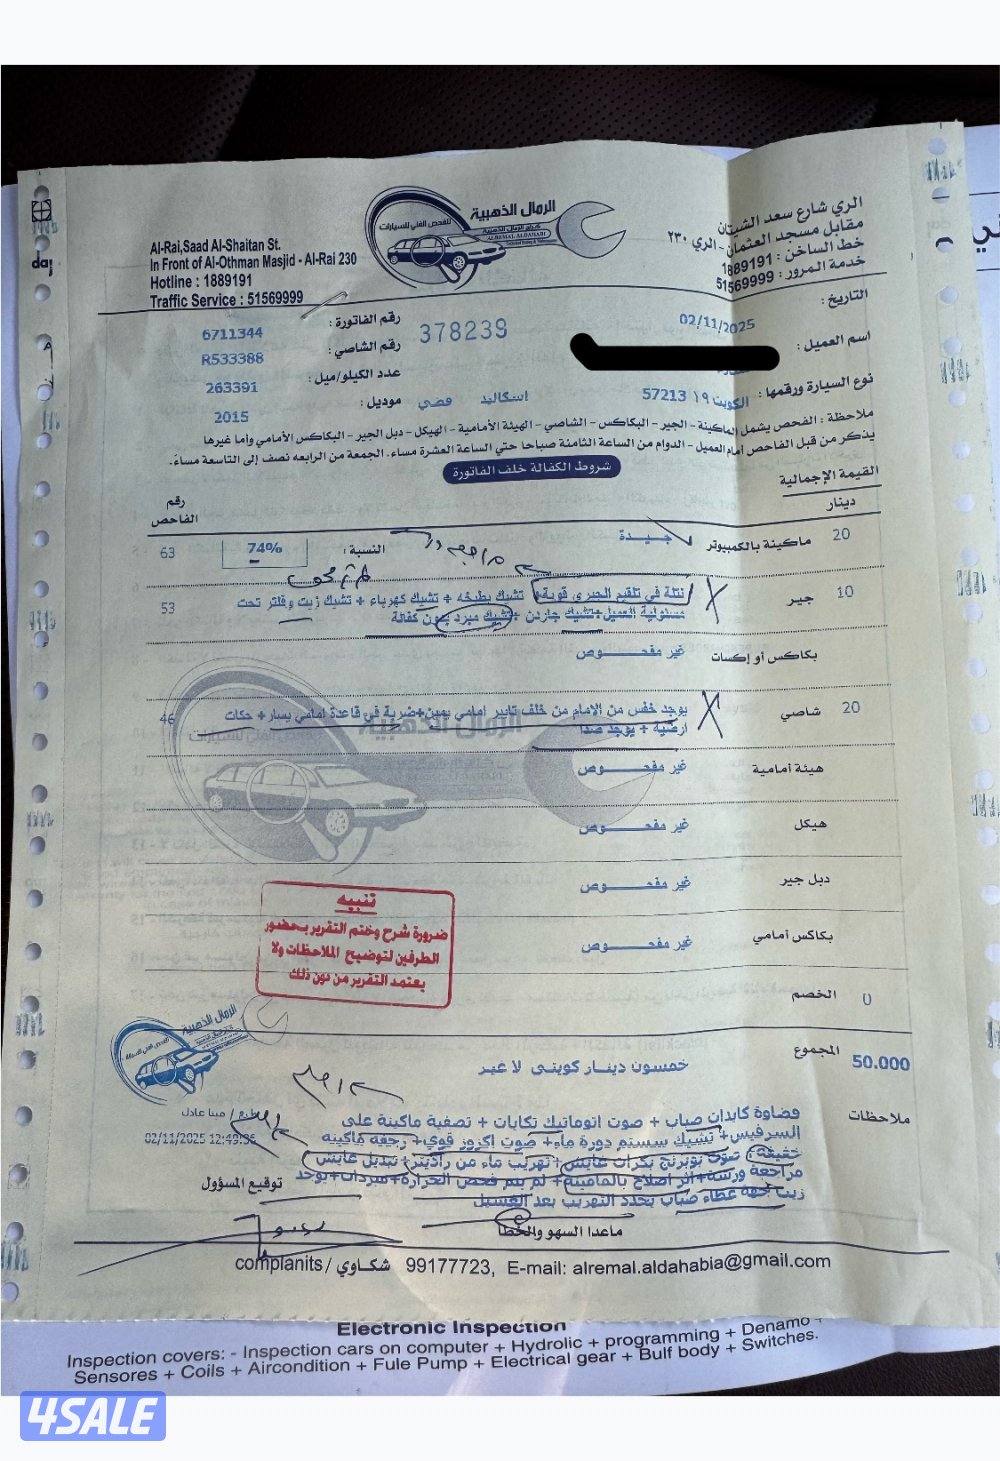 الرمال الذهبية
للفحص الفني للسيارات
كراج الرمال الذهبية
ALREMAL ALDAHABI
Al-Rai,Saad Al-Shaitan St.
In Front of Al-Othman Masjid - Al-Rai 230
Hotline : 1889191
Traffic Service : 51569999
الري شارع سعد الشيتان
مقابل مسجد العثمان - الري ٢٣٠
خط الساخن : 1889191
خدمة المرور : 51569999
التاريخ : 02/11/2025
رقم الفاتورة : 6711344
378239
اسم العميل :
رقم الشاصي : R533388
نوع السيارة ورقمها : الكويت ١٩ 57213
اسكاليد فضي
عدد الكيلو/ميل : 263391
موديل : 2015
ملاحظة : الفحص يشمل الماكينة - الجير - البكاكس - الشاصي - الهيئة الأمامية - الهيكل - دبل الجير - البكاكس الأمامي وأما غيرها
يذكر من قبل الفاحص أمام العميل - الدوام من الساعة الثامنة صباحا حتي الساعة العشرة مساء. الجمعة من الرابعه نصف إلى التاسعة مساءً.
شروط الكفالة خلف الفاتورة
القيمة الإجمالية
دينار
رقم الفاحص
20 ماكينة بالكمبيوتر جيـدة النسبة : 74% 63
10 جير نتلة في تلقيم الجير قوية+ تشيك بطيخه + تشيك كهرباء + تشيك زيت وفلتر تحت 53
مسئولية العميل+تشيك جاردن +تشيك مبرد بدون كفالة
بكاكس أو إكسات غير مفحـــوص
20 شاصي يوجد خفس من الامام من خلف تايير امامي يمين+ضربة في قاعدة امامي يسار+ حكات 46
ارضية + يوجد صدا
هيئة أمامية غير مفحـــوص
هيكل غير مفحـــوص
دبل جير غير مفحـــوص
بكاكس أمامي غير مفحـــوص
تنبيه
ضرورة شرح وختم التقرير بحضور
الطرفين لتوضيح الملاحظات ولا
يعتمد التقرير من دون ذلك
0 الخصم
50.000 المجموع خمسون دينار كويتى لا غير
ملاحظات
فضاوة كابدان صباب + صوت اتوماتيك تكايات + تصفية ماكينة على
السرفيس+ تشيك سستم دورة ماء+ صوت اكزوز قوي+ رجفة ماكينه
خفيفة+ صوت بوبرنج بكرات عايش+تهريب ماء من راديتر+ تبديل عايش
مراجعة ورسة+اثر اصلاح بالماكينة+ لم يتم فحص الحرارة+مبردات+يوجد
زيت جهة غطاء صباب يحدد التهريب بعد الغسيل
طبع / مينا عادل
02/11/2025 12:49:36
توقيع المسؤول
ماعدا السهو والخطأ
complanits / شكاوي 99177723, E-mail: alremal.aldahabia@gmail.com
Electronic Inspection
Inspection covers: - Inspection cars on computer + Hydrolic + programming + Denamo +
Sensores + Coils + Aircondition + Fule Pump + Electrical gear + Bulf body + Switches.
4SALE